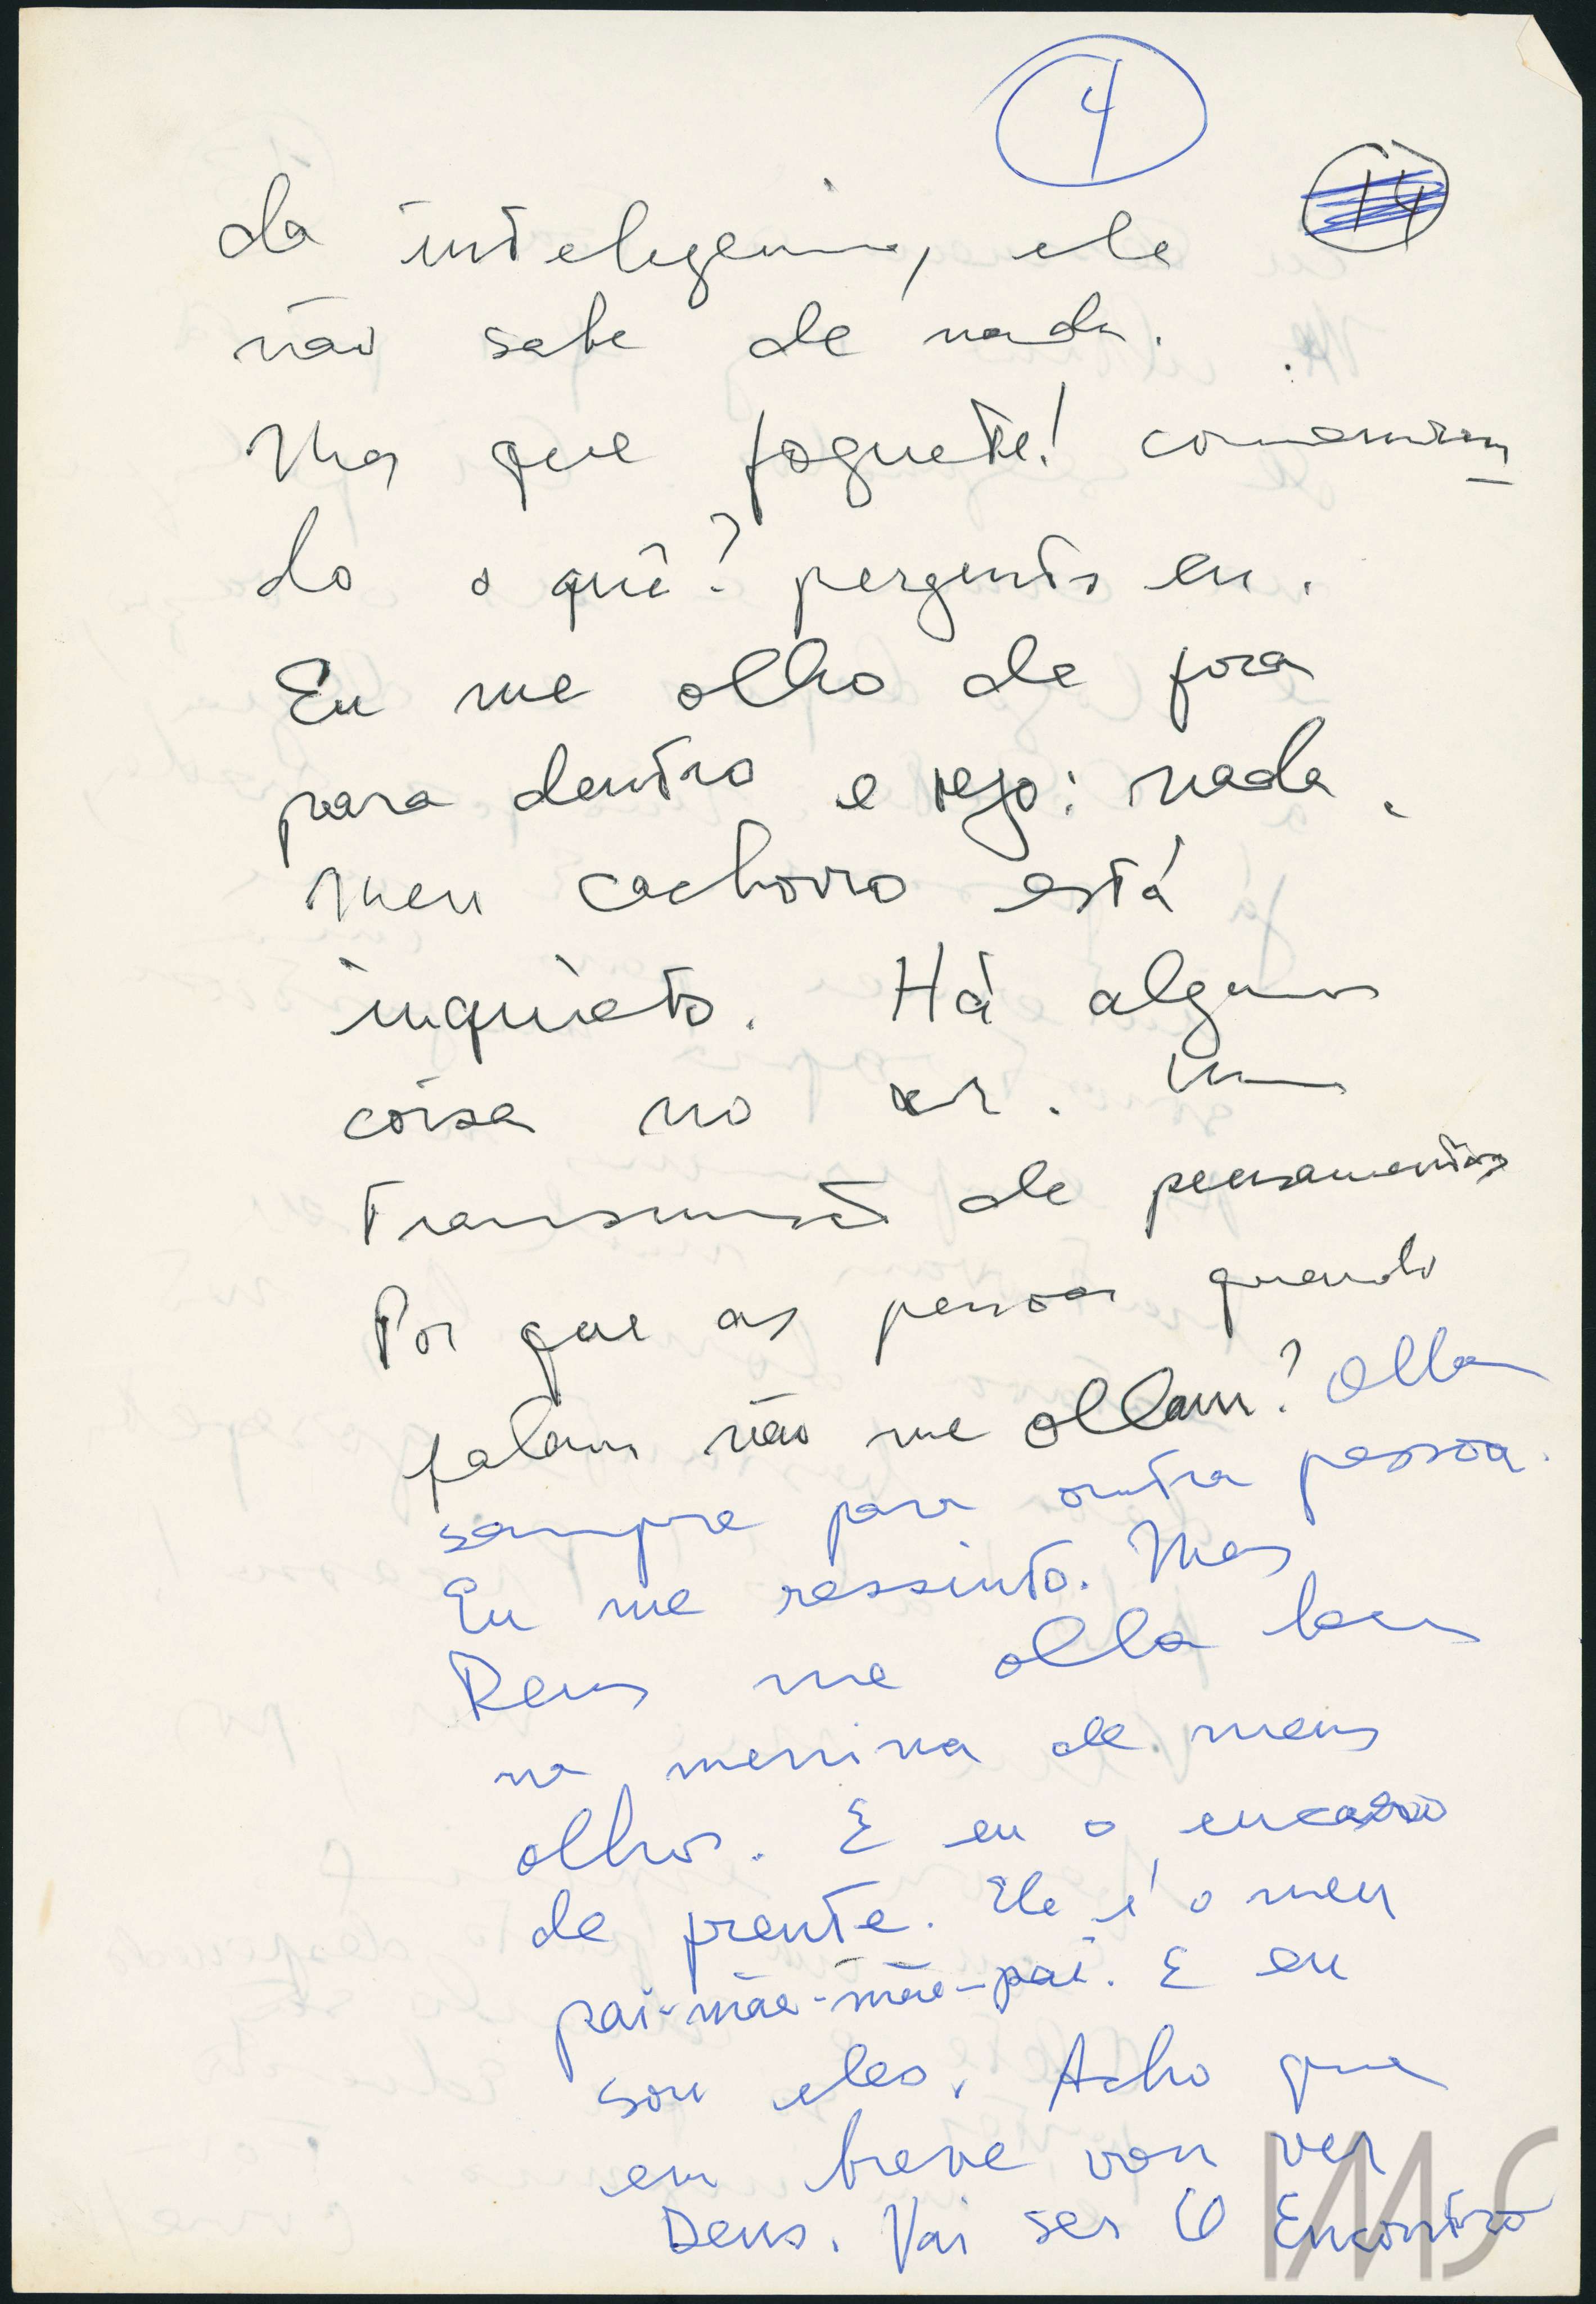 4
14
da inteligencia, ele
não sabe de nada.
Mas que foguete!
do o quê? pergunto eu.
Eu me olho de fora
para dentro e vejo: nada.
Meu cachorro está
inquieto. Há alguma
coisa no ar. Uma
de pensamentos
Por que as pessoas quando
falam não me olham? Olham
sempre para outra pessoa.
Eu me ressinto. Mas
Deus me olha bem
na menina de meus
olhos. E eu o encaro
de frente. Ele é o meu
pai-mãe-mãe-pai. E eu
sou eles. Acho que
em breve vou ver
Deus. Vai ser O Encontro
IMS